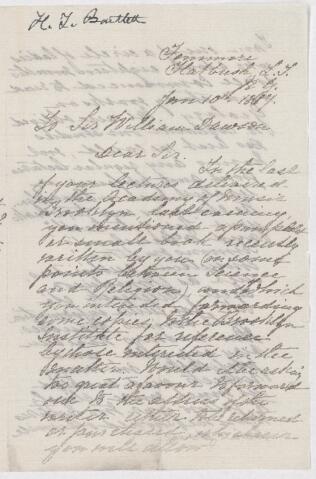 H. T. Bartlett
Fenimore
Flatbush L. I.
N. Y.
Jan 10th 1887.
To Sir William Dawson
Dear Sir.
In the last
of your lectures delivered
in the Academy of Music
Brooklyn last evening,
you mentioned a pamphlet
or small book recently
written by you on some
points between Science
and Religion, which
you intended forwarding
some copies to the Brooklyn
Institute for reference
by those interested in the
matter. Would it be asking
too great a favour to forward
one to the address of the
writer, to be returned
or purchased,
you will allow